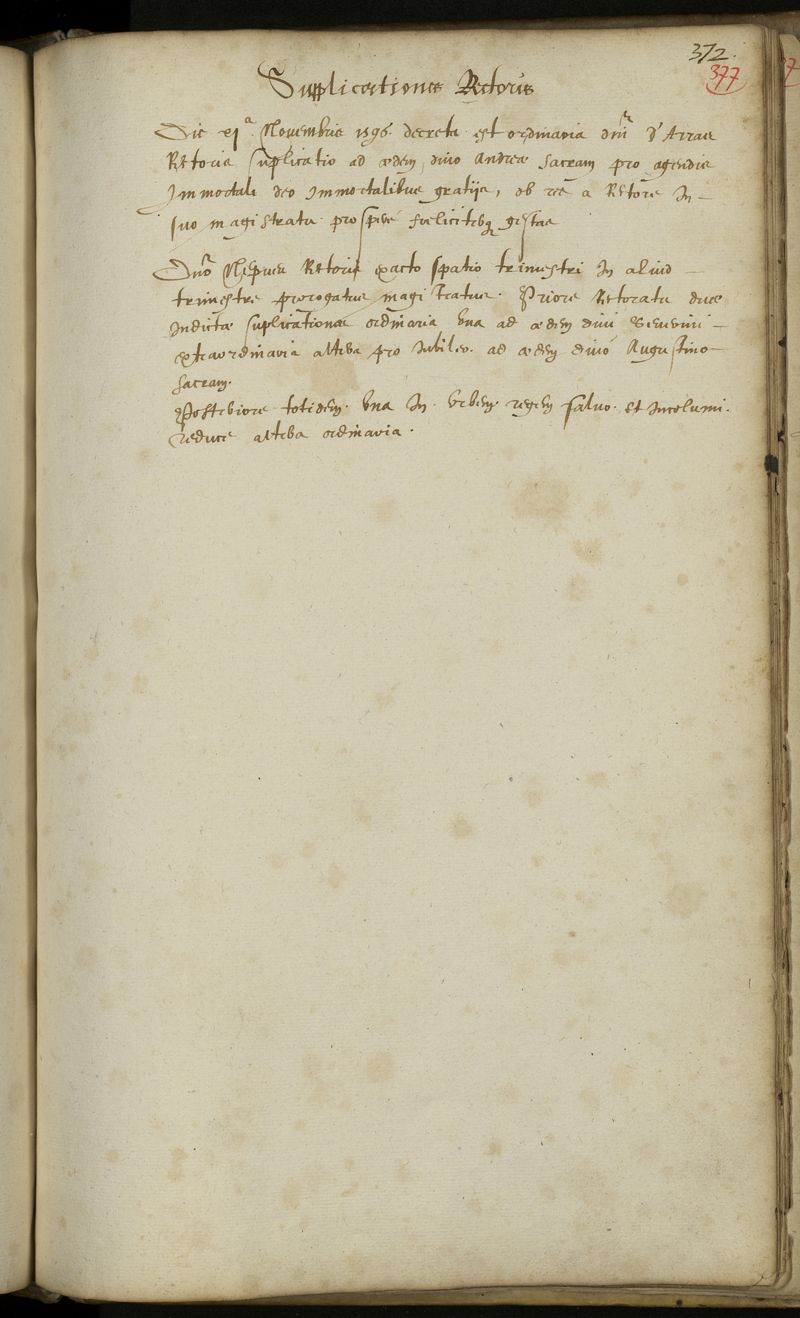 372.
377
Supplicationes Rectoris
Die xja Novembris 1596 decreta est ordinaria dni D'Arras
Rectoris suplicatio ad ædem divo Andreæ sacram pro agendis
Immortali deo immortalibus gratijs, ob res a Rectore in
suo magistratu prospere fœlicitebq gestas
Rectoris exacto spatio trimestri In aliud
trimestre prorogatus magistratus. Priore Rectoratu duæ
Indictæ suplicationes ordinaria una ad ædem divi
extraordinaria altera pro Iubileo. ad ædem divo Augustino
sacram.
Posteriore totidem. una In. urbem. regem salvo. et Incolumi.
reduce altera ordinaria.